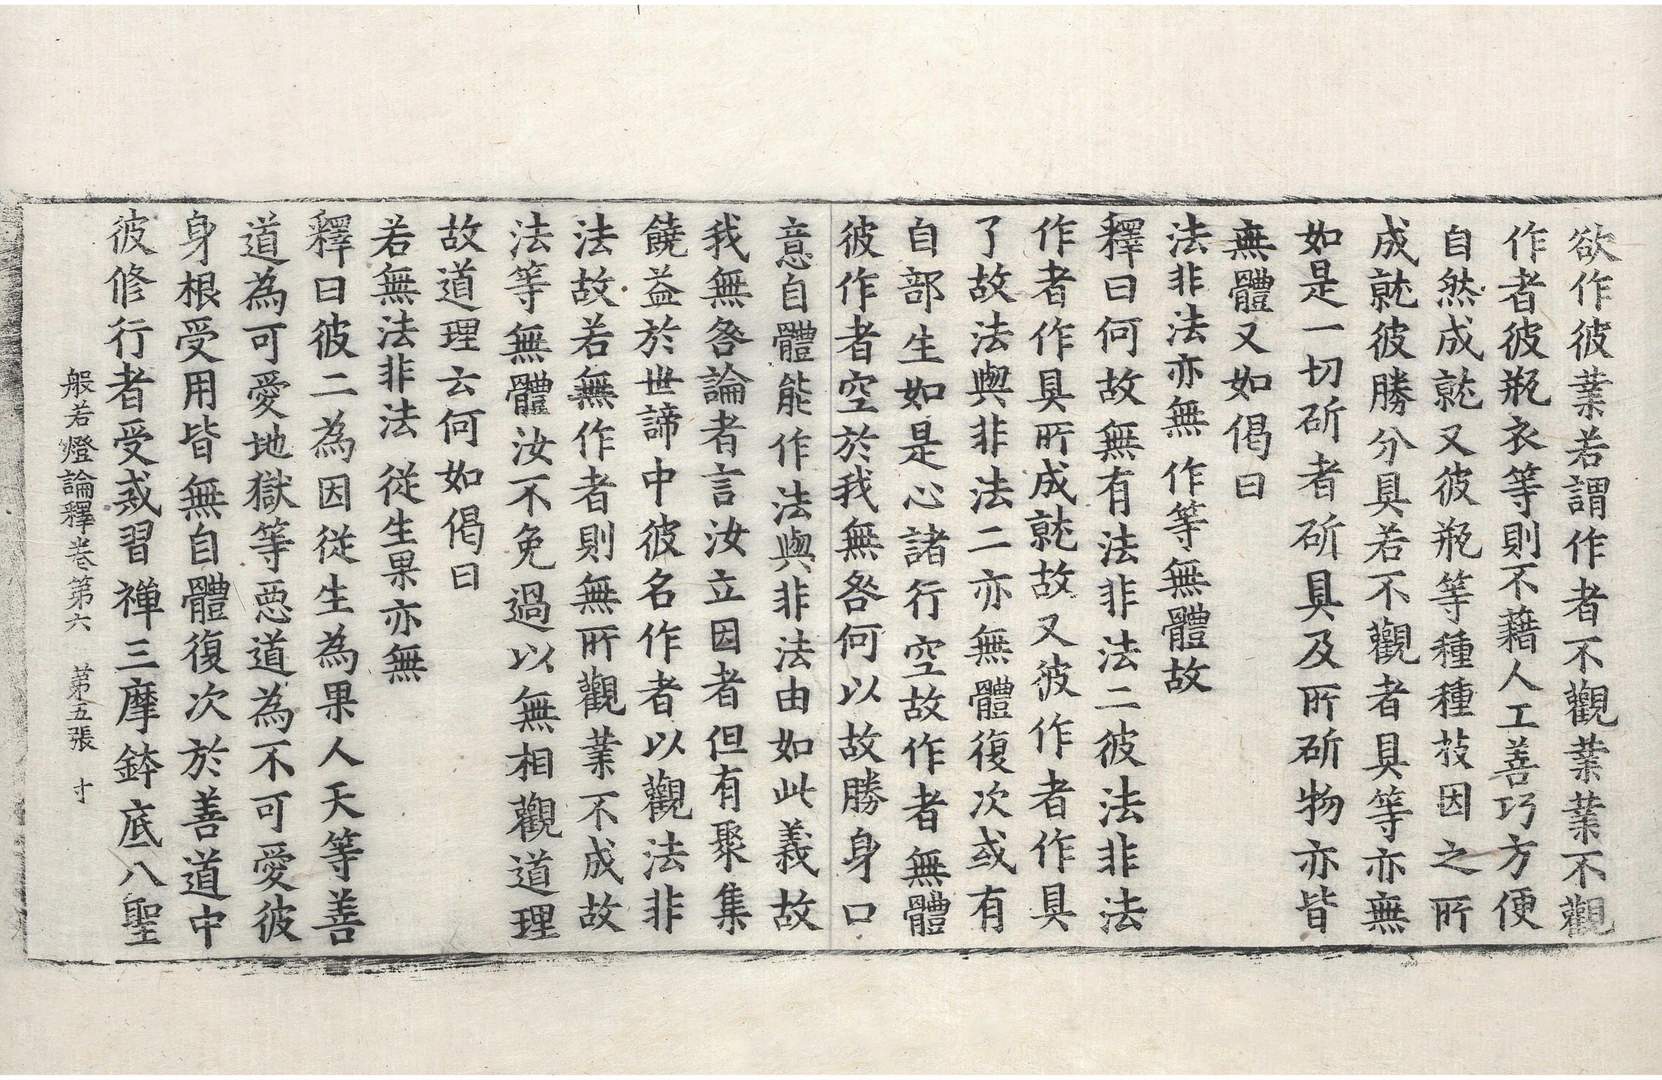 欲作彼業若謂作者不觀業業不觀
作者彼瓶衣等則不藉人工善巧方便
自然成就又彼瓶等種種技因之所
成就彼勝分具若不觀者具等亦無
如是一切斫者斫具及所斫物亦皆
無體又如偈曰
法非法亦無 作等無體故
釋曰何故無有法非法二彼法非法
作者作具所成就故又彼作者作具
了故法與非法二亦無體復次或有
自部生如是心諸行空故作者無體
彼作者空於我無咎何以故勝身口
意自體能作法與非法由如此義故
我無咎論者言汝立因者但有聚集
饒益於世諦中彼名作者以觀法非
法故若無作者則無所觀業不成故
法等無體汝不免過以無相觀道理
故道理云何如偈曰
若無法非法 從生果亦無
釋曰彼二為因從生為果人天等善
道為可愛地獄等惡道為不可愛彼
身根受用皆無自體復次於善道中
彼修行者受戒習禪三摩鉢底八聖
般若燈論釋卷第六 第五張 寸